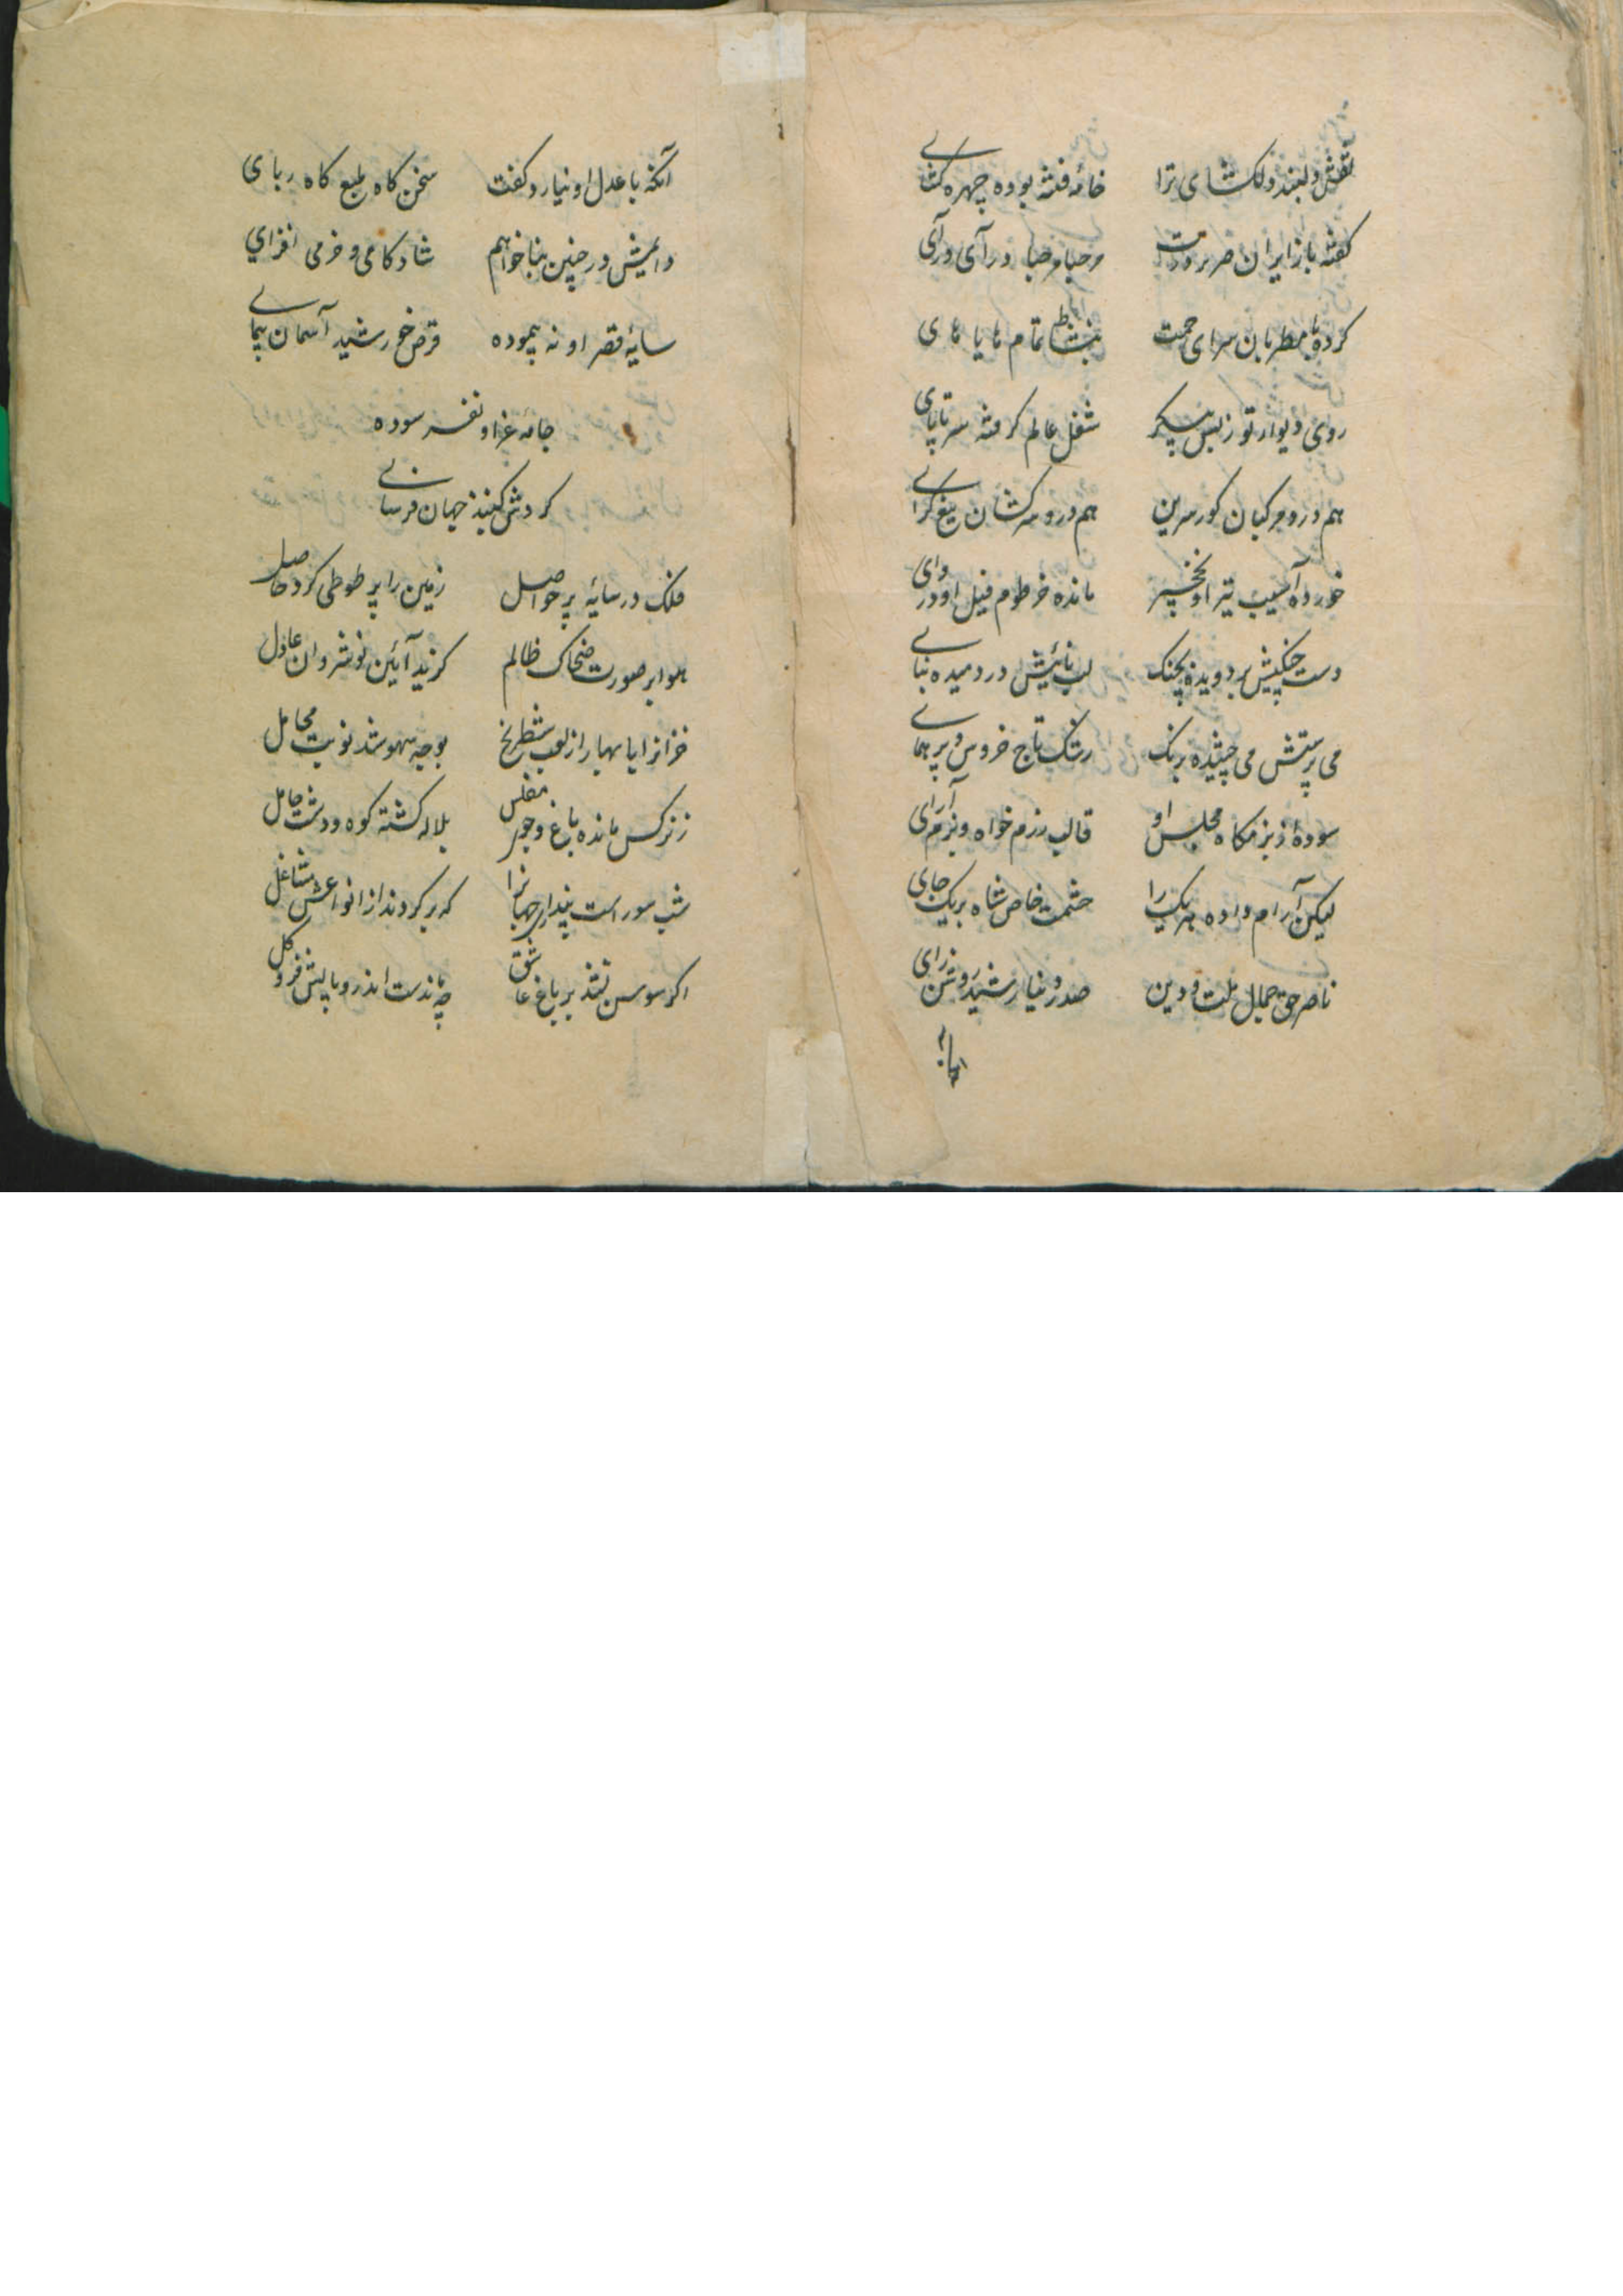 نقش دلبند دلکشای ترا خامه فتنه بوده چهره کشای
کفته با زایران صریر درت مرحبا مرحبا درآی درآی
کرده با مطربان سرای تمام های یا های
روی دیوار تو زبس پیکر شغل عالم کرفته سر تا پای
هم درو مرکبان کور سرین هم درو سرکشان تیغ کرای
خورده آسیب تیر او نخچیر مانده خرطوم فیل او در وای
دست چنکیش بردویده بچنک لب نائیش در دمیده بنای
می پرستش می چشیده برنک رشک تاج خروس و پر همای
سوده در بزمکاه مجلس او قالب رزم خواه و بزم آرای
لیکن آرام داده هر یک را حشمت خاص شاه بریک جای
ناصر حق جمال ملت و دین صدر دنیا رشید روشن رای
آنکه با عدل او نیارد کفت سخن کاه طبع کاه ربای
دایمش در چنین بنا خواهم شادکامی و خرمی افزای
سایه قصر او نه پیموده قرص خورشید آسمان پیمای
جامه عز او نفرسوده
کردش کنبد جهان فرسای
فلک در سایه پر حواصل زمین را پر طوطی کرد حاصل
هوا بر صورت ضحاک ظالم کزید آئین نوشروان عادل
خزانرا با بهار از لعب شطرنج بوجه سهو شد نوبت
ز نرکس مانده باغ و جوی مفلس بلاله کشته کوه و دشت حامل
شب سور است پنداری جهانرا که بر کردند از انواعش مشاغل
اکر سوسن نشد بر باغ عاشق چه ماندست اندرو پایش فرو کل